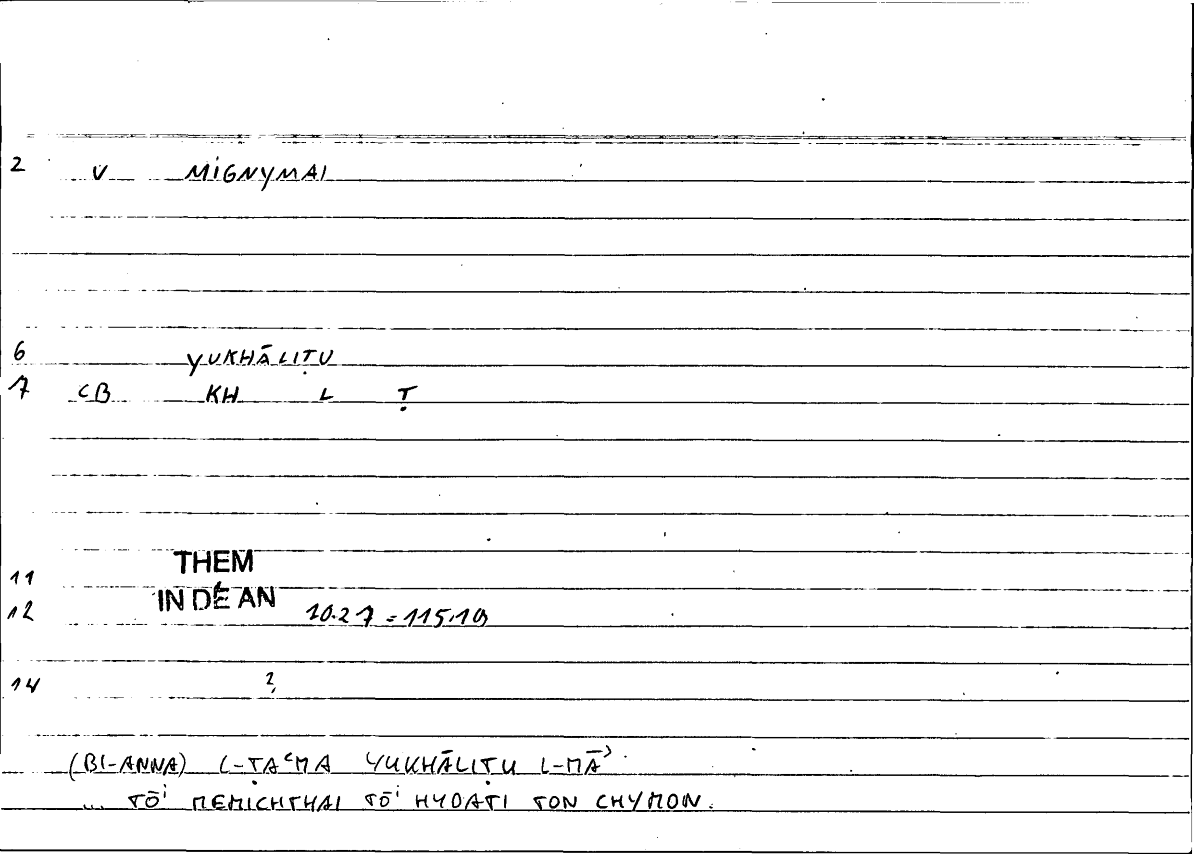 2 V MIGNYMAI
6 YUKHĀLIṬU
7 CB KH L Ṭ
THEM
11
IN DE AN
12 10.27 = 115.19
14 2,
(BI-ANNA) L-ṬAʿMA YUKHĀLIṬU L-MĀʾ
... TŌⁱ MEMICHTHAI TŌⁱ HYDATI TON CHYMON.